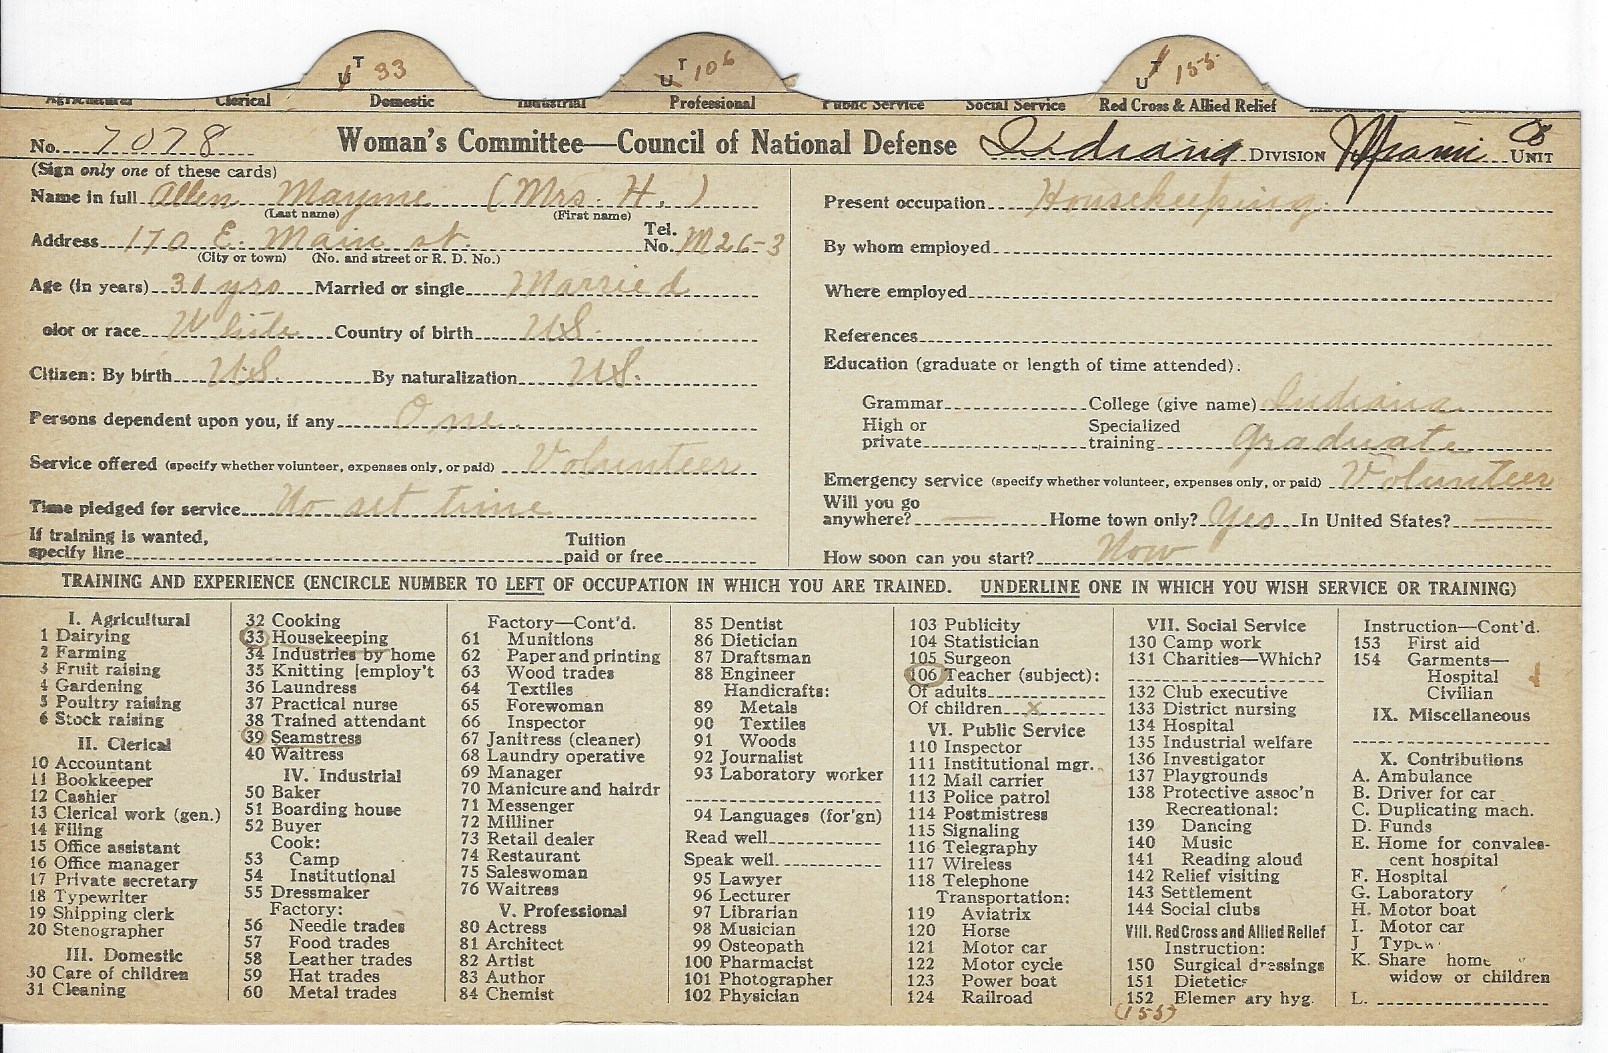 U T 33
U T 106
U T 155
Agricultural Clerical Domestic Industrial Professional Public Service Social Service Red Cross & Allied Relief
No. 7078 Woman's Committee—Council of National Defense Indiana DIVISION Miami Co UNIT
(Sign only one of these cards)
Name in full Allen Mayme (Mrs. H.)
(Last name) (First name)
Address 170 E. Main st. Tel. No. M26-3
(City or town) (No. and street or R. D. No.)
Age (in years) 30 yrs Married or single Married
olor or race White Country of birth U.S.
Citizen: By birth U.S. By naturalization U.S.
Persons dependent upon you, if any One
Service offered (specify whether volunteer, expenses only, or paid) Volunteer
Time pledged for service No set time
If training is wanted, specify line Tuition paid or free
Present occupation Housekeeping
By whom employed
Where employed
References
Education (graduate or length of time attended):
Grammar College (give name) Indiana
High or private Specialized training graduate
Emergency service (specify whether volunteer, expenses only, or paid) Volunteer
Will you go anywhere? — Home town only? Yes In United States? —
How soon can you start? Now
TRAINING AND EXPERIENCE (ENCIRCLE NUMBER TO LEFT OF OCCUPATION IN WHICH YOU ARE TRAINED. UNDERLINE ONE IN WHICH YOU WISH SERVICE OR TRAINING)
I. Agricultural
1 Dairying
2 Farming
3 Fruit raising
4 Gardening
5 Poultry raising
6 Stock raising
II. Clerical
10 Accountant
11 Bookkeeper
12 Cashier
13 Clerical work (gen.)
14 Filing
15 Office assistant
16 Office manager
17 Private secretary
18 Typewriter
19 Shipping clerk
20 Stenographer
III. Domestic
30 Care of children
31 Cleaning
32 Cooking
33 Housekeeping
34 Industries by home
35 Knitting [employ't
36 Laundress
37 Practical nurse
38 Trained attendant
39 Seamstress
40 Waitress
IV. Industrial
50 Baker
51 Boarding house
52 Buyer
Cook:
53 Camp
54 Institutional
55 Dressmaker
Factory:
56 Needle trades
57 Food trades
58 Leather trades
59 Hat trades
60 Metal trades
Factory—Cont'd.
61 Munitions
62 Paper and printing
63 Wood trades
64 Textiles
65 Forewoman
66 Inspector
67 Janitress (cleaner)
68 Laundry operative
69 Manager
70 Manicure and hairdr
71 Messenger
72 Milliner
73 Retail dealer
74 Restaurant
75 Saleswoman
76 Waitress
V. Professional
80 Actress
81 Architect
82 Artist
83 Author
84 Chemist
85 Dentist
86 Dietician
87 Draftsman
88 Engineer
Handicrafts:
89 Metals
90 Textiles
91 Woods
92 Journalist
93 Laboratory worker
94 Languages (for'gn)
Read well
Speak well
95 Lawyer
96 Lecturer
97 Librarian
98 Musician
99 Osteopath
100 Pharmacist
101 Photographer
102 Physician
103 Publicity
104 Statistician
105 Surgeon
106 Teacher (subject):
Of adults
Of children x
VI. Public Service
110 Inspector
111 Institutional mgr.
112 Mail carrier
113 Police patrol
114 Postmistress
115 Signaling
116 Telegraphy
117 Wireless
118 Telephone
Transportation:
119 Aviatrix
120 Horse
121 Motor car
122 Motor cycle
123 Power boat
124 Railroad
VII. Social Service
130 Camp work
131 Charities—Which?
132 Club executive
133 District nursing
134 Hospital
135 Industrial welfare
136 Investigator
137 Playgrounds
138 Protective assoc'n
Recreational:
139 Dancing
140 Music
141 Reading aloud
142 Relief visiting
143 Settlement
144 Social clubs
VIII. Red Cross and Allied Relief
Instruction:
150 Surgical dressings
151 Dietetics
152 Elemer ary hyg.
(155)
Instruction—Cont'd.
153 First aid
154 Garments—
Hospital
Civilian
IX. Miscellaneous
X. Contributions
A. Ambulance
B. Driver for car
C. Duplicating mach.
D. Funds
E. Home for convales-
cent hospital
F. Hospital
G. Laboratory
H. Motor boat
I. Motor car
J. Typew
K. Share home
widow or children
L.